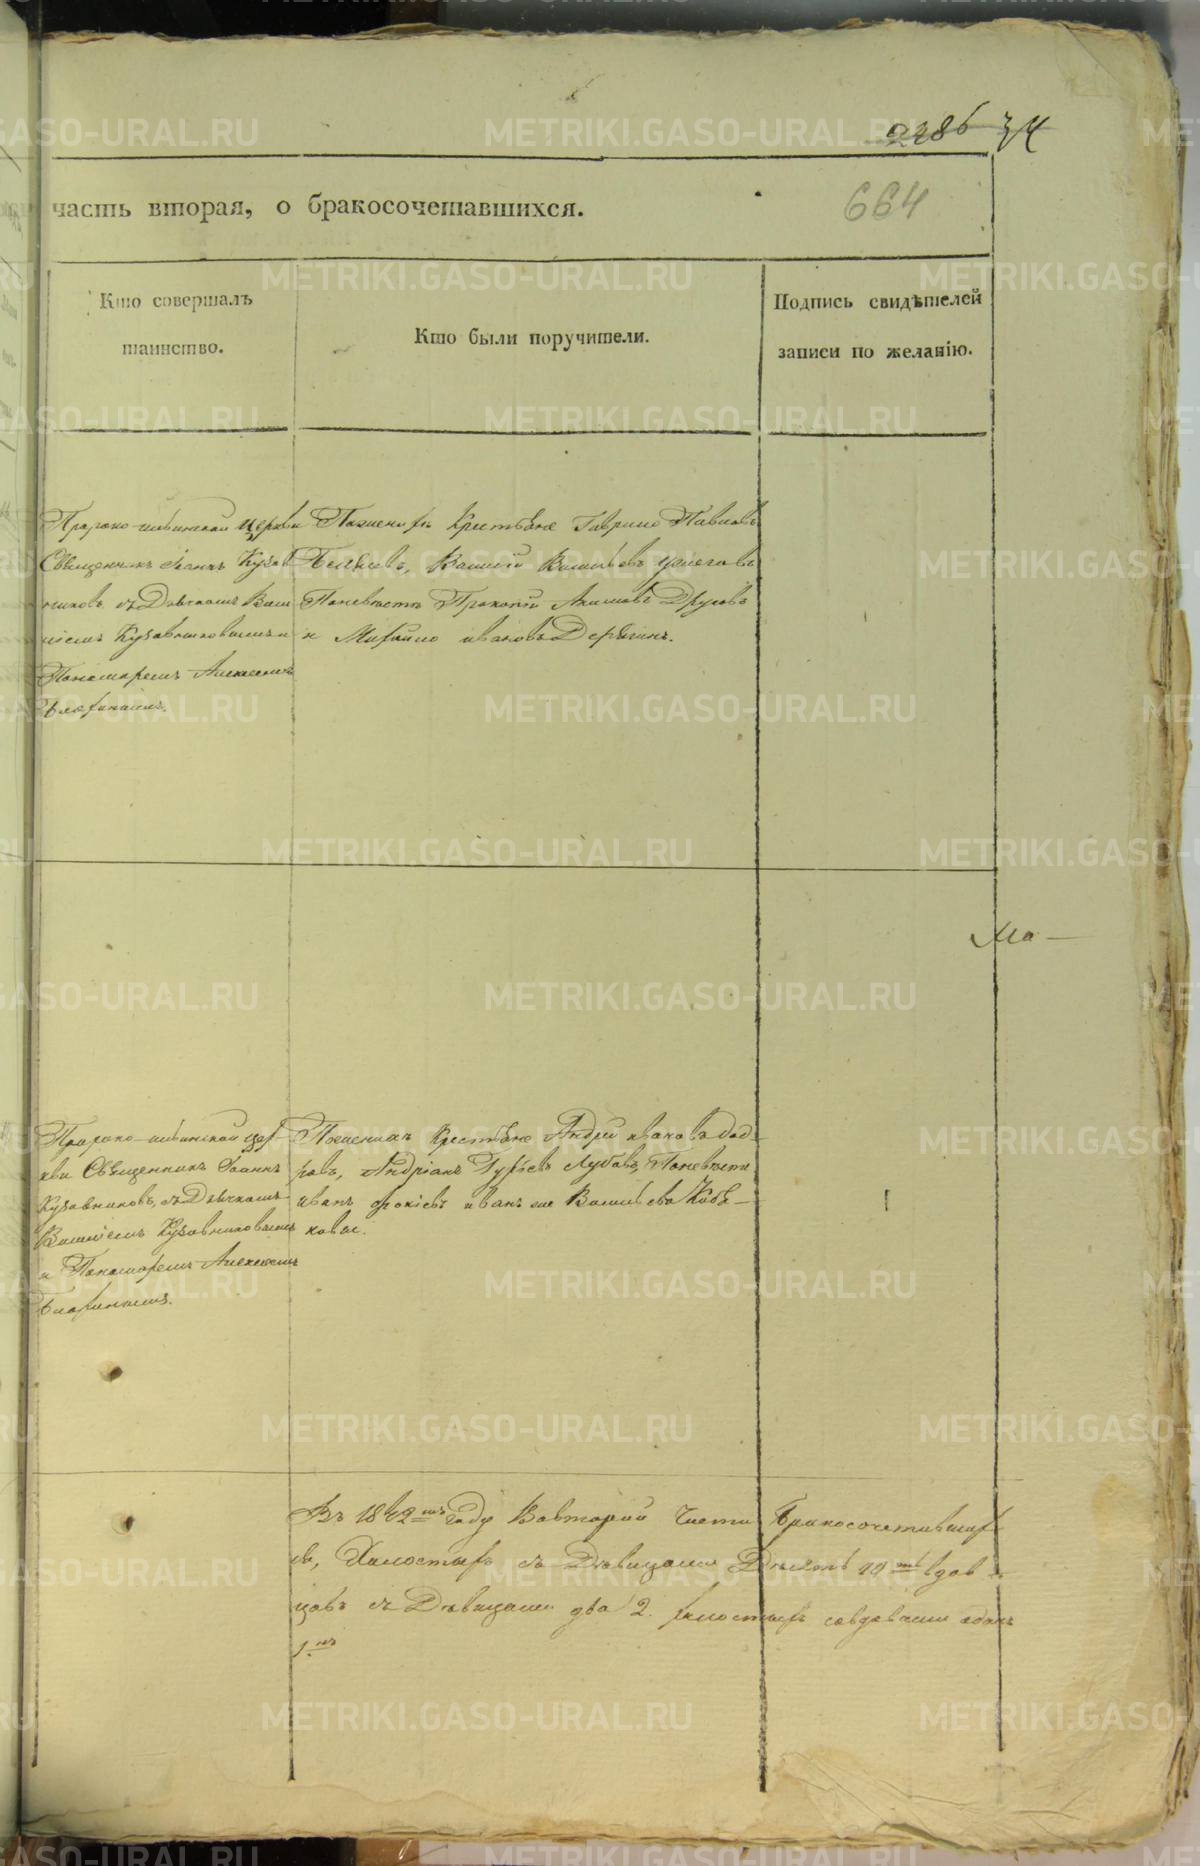 2286 34
664
часть вторая, о бракосочетавшихся.
Кто совершалъ
таинство.
Кто были поручители.
Подпись свидѣтелей
записи по желанію.
Пророко-ильинской церкви
Священникъ Іоаннъ Кузов
никовъ, съ Дьячкомъ Васи
ліемъ Кузовниковымъ и
Пономаремъ Алексеемъ
По женихѣ Крестьяне Гаврило Павловъ
Василій Васильевъ
По невѣстѣ Прокопій Акимовъ
и Михайло Ивановъ Дерягинъ.
Ма
Пророко-ильинской цер-
кви Священникъ Іоаннъ
Кузовниковъ, съ Дьячкомъ
Василіемъ Кузовниковымъ
и Пономаремъ Алексеемъ
По женихѣ Крестьяне Андрей Ивановъ
Андріанъ Гурьевъ По невѣсте
Иванъ Фокіевъ Иванъ же Васильевъ Кобя-
ковы.
Въ 1842мъ Году Вовторой Части Бракосочетавших
ся, Холостыхъ съ Дѣвицами Десять 10ть вдов
цовъ съ Дѣвицами два 2. холостыхъ совдовами одинъ
1.нъ
METRIKI.GASO-URAL.RU